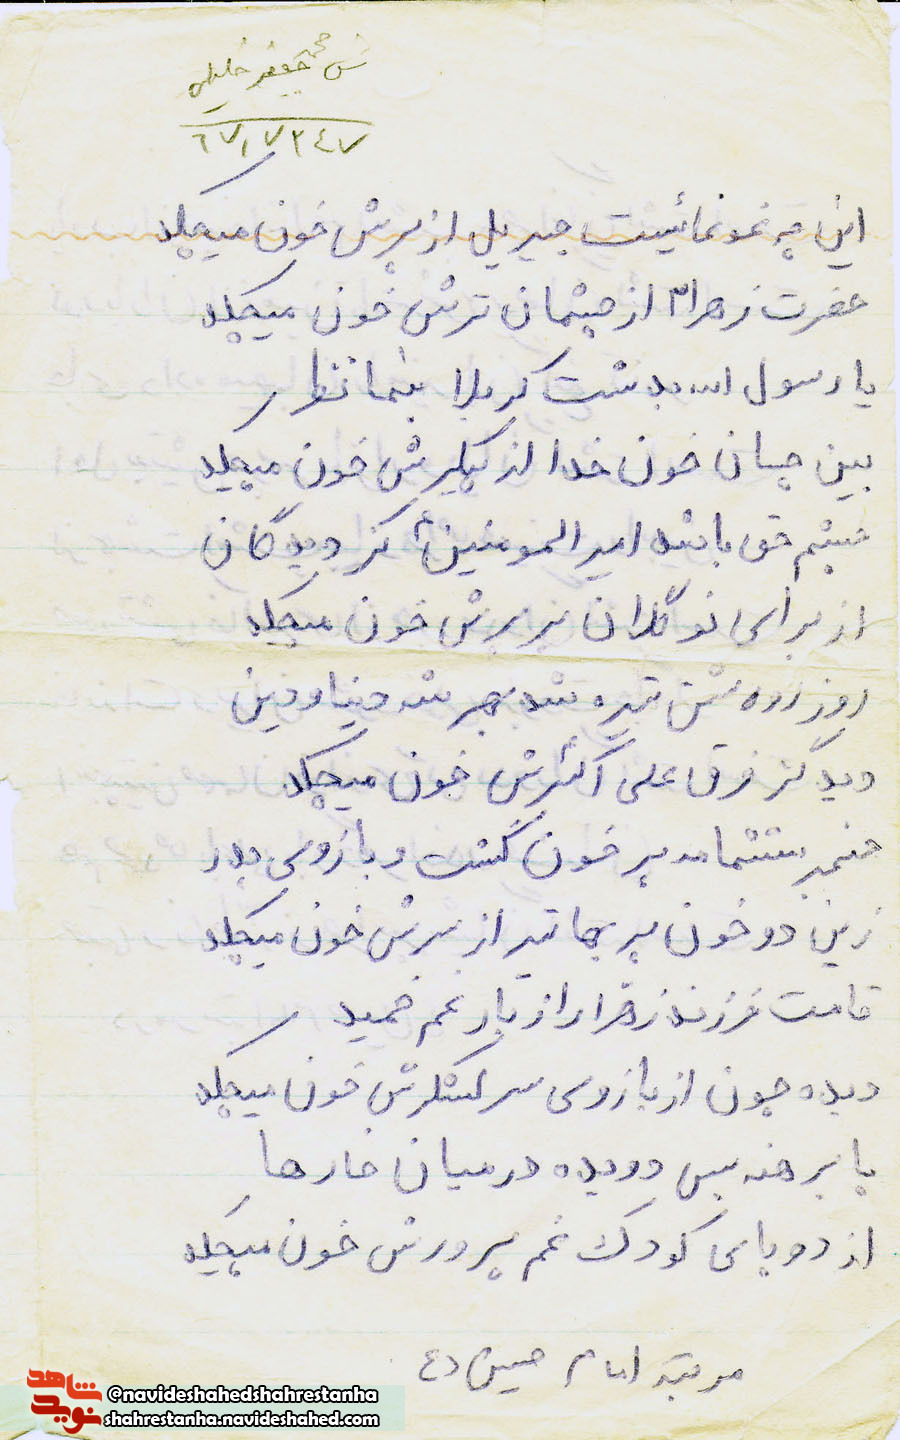 ش محمد جعفر خلیلی
٦٧١٧٢٤٧
این چه غمونمائیست جبریل از پرش خون میچکد
حضرت زهرا از چشمان ترش خون میچکد
یا رسول اله بدشت کربلا بنما نظر
ببین چسان خون خدا از پیکرش خون میچکد
چشم حق باشید امیر المومنین کز دیدگان
از برای نو گلان پرپرش خون میچکد
روز روشن تیره شد بهر شه دنیا و دین
دید کز فرق علی اکبرش خون میچکد
ششماهه پر خون گشت و بازوی پدر
زین دو خون پر بها تیر از برش خون میچکد
قامت فرزند زهرا از بار غم خمید
دیده چون از بازوی سر لشگرش خون میچکد
پا برهنه بس دویده در میان خارها
از دو پای کودک غم پرورش خون میچکد
مرثیه امام حسین (ع
شاهد
نوید
@navideshahedshahrestanha
shahrestanha.navideshahed.com